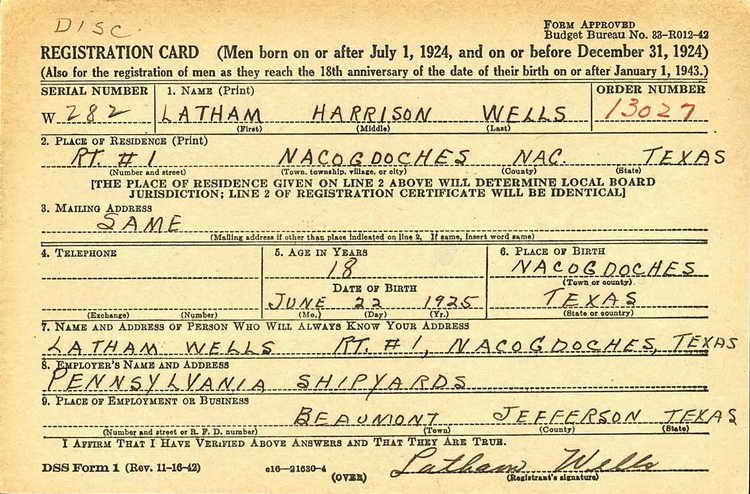 DISC.
FORM APPROVED
Budget Bureau No. 33-R012-42
REGISTRATION CARD (Men born on or after July 1, 1924, and on or before December 31, 1924)
(Also for the registration of men as they reach the 18th anniversary of the date of their birth on or after January 1, 1943.)
SERIAL NUMBER 1. NAME (Print) ORDER NUMBER
W. 282 LATHAM HARRISON WELLS 13027
(First) (Middle) (Last)
2. PLACE OF RESIDENCE (Print)
RT. #1 NACOGDOCHES NAC. TEXAS
(Number and street) (Town, township, village, or city) (County) (State)
[THE PLACE OF RESIDENCE GIVEN ON LINE 2 ABOVE WILL DETERMINE LOCAL BOARD
JURISDICTION; LINE 2 OF REGISTRATION CERTIFICATE WILL BE IDENTICAL]
3. MAILING ADDRESS
SAME
(Mailing address if other than place indicated on line 2. If same, insert word same)
4. TELEPHONE 5. AGE IN YEARS 6. PLACE OF BIRTH
18 NACOGDOCHES
DATE OF BIRTH (Town or county)
JUNE 22 1925 TEXAS
(Exchange) (Number) (Mo.) (Day) (Yr.) (State or country)
7. NAME AND ADDRESS OF PERSON WHO WILL ALWAYS KNOW YOUR ADDRESS
LATHAM WELLS RT. #1, NACOGDOCHES, TEXAS
8. EMPLOYER'S NAME AND ADDRESS
PENNSYLVANIA SHIPYARDS
9. PLACE OF EMPLOYMENT OR BUSINESS
BEAUMONT JEFFERSON TEXAS
(Number and street or R. F. D. number) (Town) (County) (State)
I AFFIRM THAT I HAVE VERIFIED ABOVE ANSWERS AND THAT THEY ARE TRUE.
DSS Form 1 (Rev. 11-16-42) e16-21630-4 (OVER) Latham Wells
(Registrant's signature)